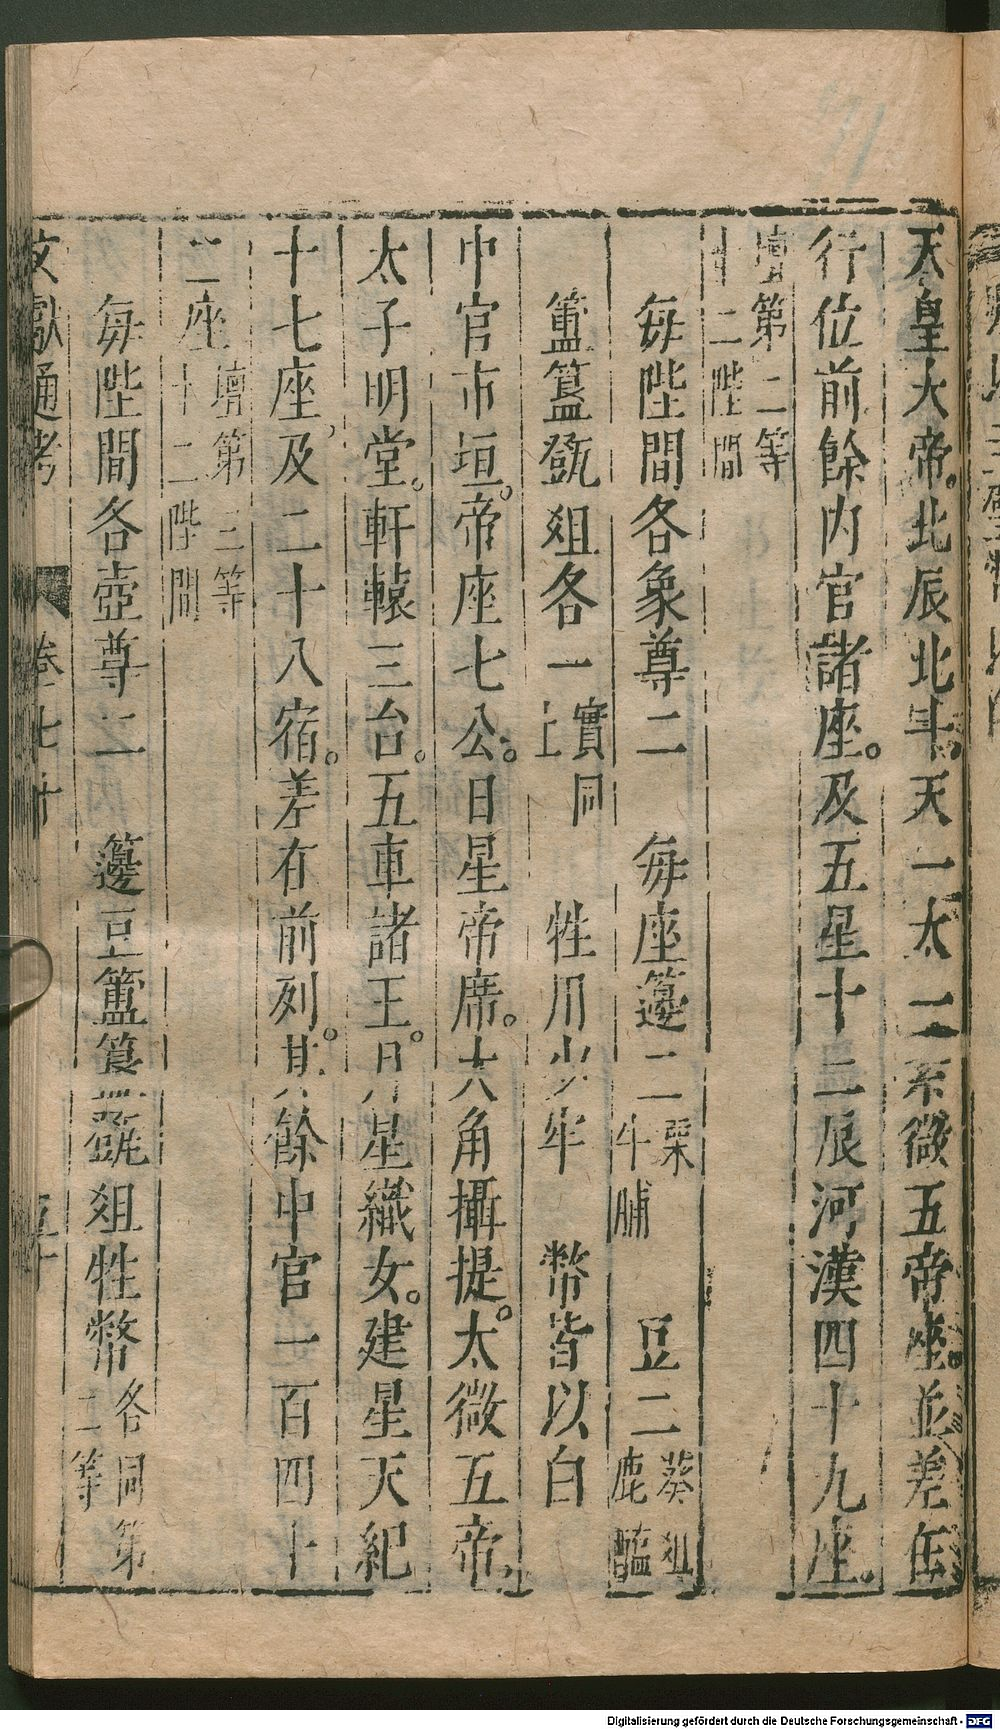 天皇大帝北辰北斗天一太一紫微五帝座並差在
行位前餘内官諸座及五星十二辰河漢四十九座
壇第二等十二陛間
每陛間各象尊二　每座籩二栗牛脯　豆二葵菹鹿醢
簠簋㽅俎各一實同上　牲用少牢　幣皆以白
中官市垣帝座七公日星帝席大角攝提太微五帝
太子明堂軒轅三台五車諸王月星織女建星天紀
十七座及二十八宿差在前列其餘中官一百四十
二座壇第三等十二陛間
每陛間各壺尊二　籩豆簠簋㽅俎牲幣各同第二等
文獻通考　卷七十
Digitalisierung gefördert durch die Deutsche Forschungsgemeinschaft - DFG